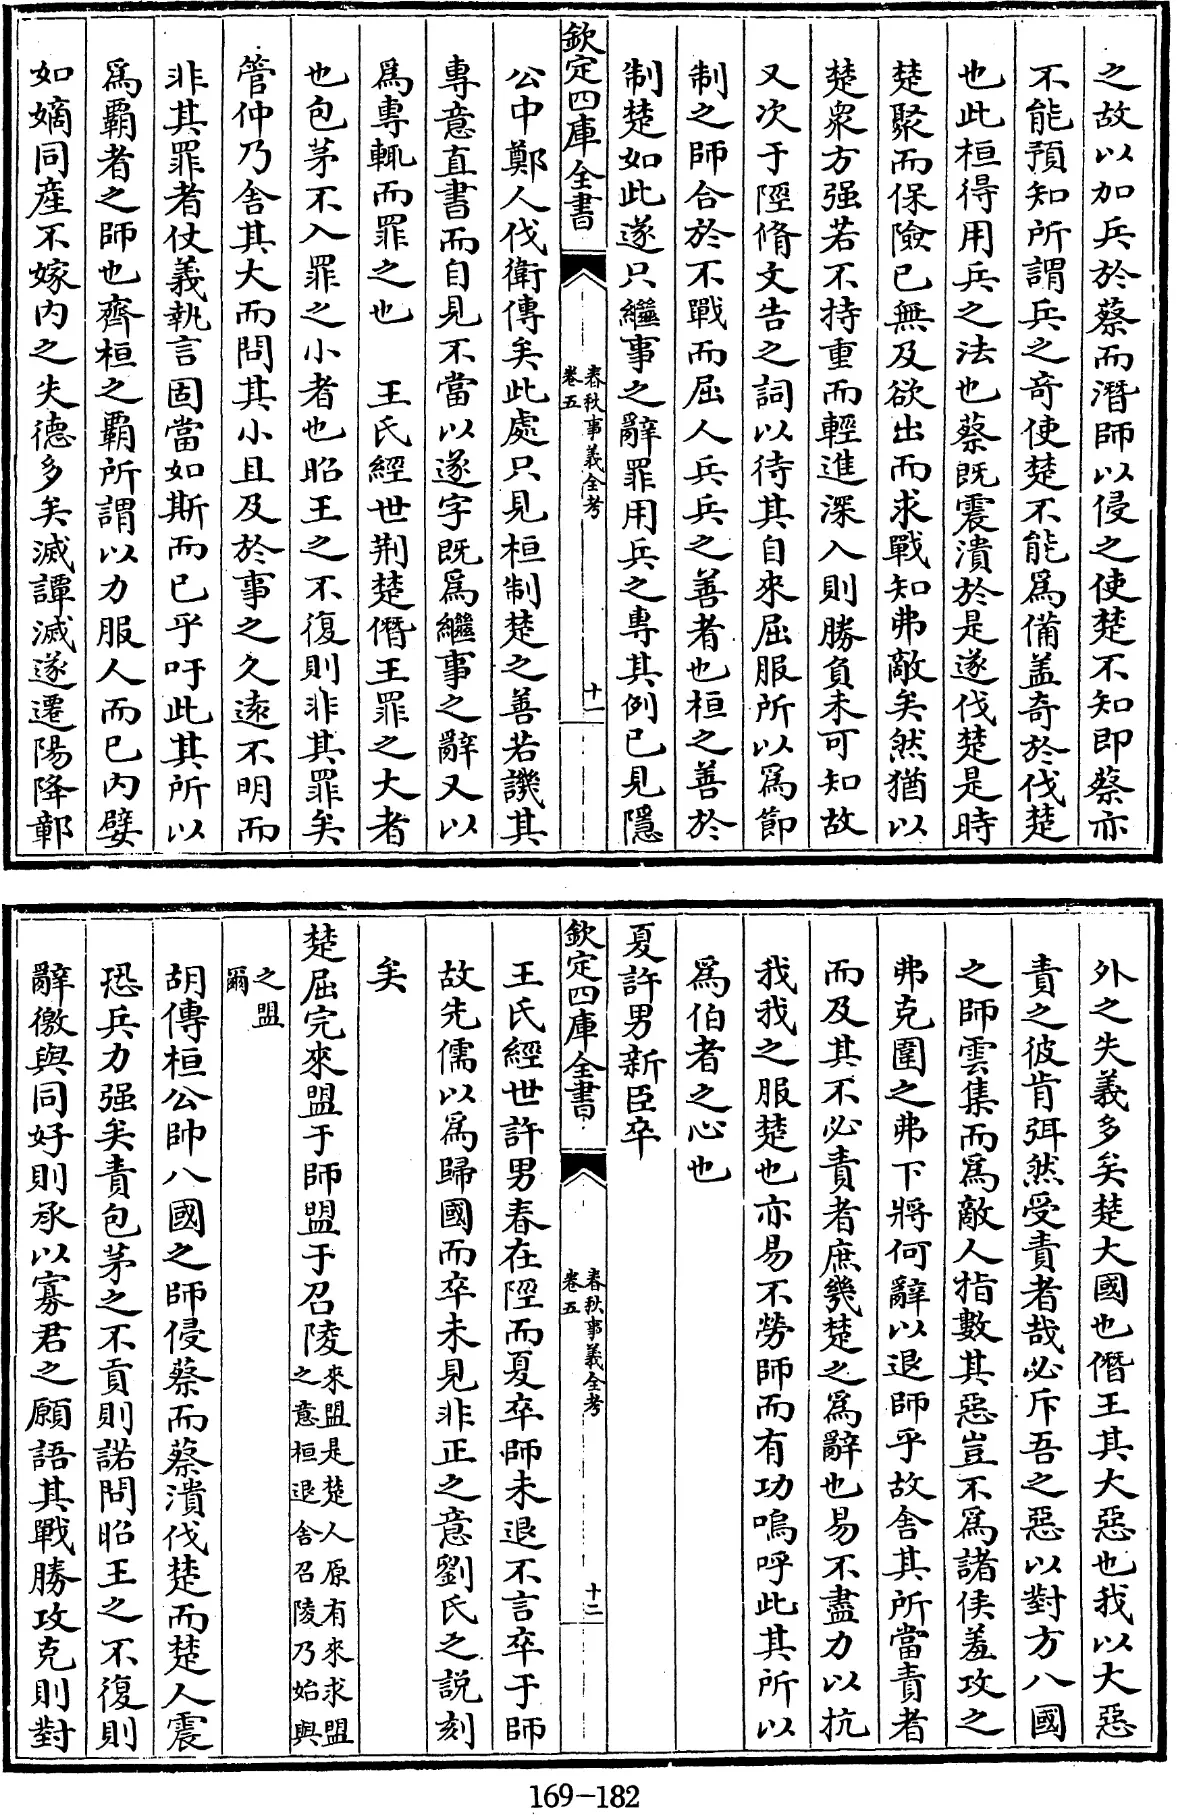 之故以加兵於蔡而潛師以侵之使楚不知即蔡亦
不能預知所謂兵之奇使楚不能爲備盖奇於伐楚
也此桓得用兵之法也蔡既震潰於是遂伐楚是時
楚聚而保險已無及欲出而求戰知弗敵矣然猶以
楚衆方强若不持重而輕進深入則勝負未可知故
又次于陘脩文告之詞以待其自來屈服所以爲節
制之師合於不戰而屈人兵兵之善者也桓之善於
制楚如此遂只繼事之辭罪用兵之專其例已見隱
欽定四庫全書
春秋事義全考
卷五
十一
公中鄭人伐衛傳矣此處只見桓制楚之善若譏其
專意直書而自見不當以遂字既爲繼事之辭又以
爲專輒而罪之也 王氏經世荆楚僭王罪之大者
也包茅不入罪之小者也昭王之不復則非其罪矣
管仲乃舍其大而問其小且及於事之久遠不明而
非其罪者仗義執言固當如斯而已乎吁此其所以
爲覇者之師也齊桓之覇所謂以力服人而已内嬖
如嫡同産不嫁内之失德多矣滅譚滅遂遷陽降鄣
外之失義多矣楚大國也僭王其大惡也我以大惡
責之彼肯弭然受責者哉必斥吾之惡以對方八國
之師雲集而爲敵人指數其惡豈不爲諸侯羞攻之
弗克圍之弗下將何辭以退師乎故舍其所當責者
而及其不必責者庶㡬楚之爲辭也易不盡力以抗
我我之服楚也亦易不勞師而有功嗚呼此其所以
爲伯者之心也
夏許男新臣卒
欽定四庫全書
春秋事義全考
卷五
十二
王氏經世許男春在陘而夏卒師未退不言卒于師
故先儒以爲歸國而卒未見非正之意劉氏之説刻
矣
楚屈完來盟于師盟于召陵
來盟是楚人原有來求盟
之意桓退舍召陵乃始與
之盟
爾
胡傳桓公帥八國之師侵蔡而蔡潰伐楚而楚人震
恐兵力强矣責包茅之不貢則諾問昭王之不復則
辭徼與同好則承以寡君之願語其戰勝攻克則對
169-182